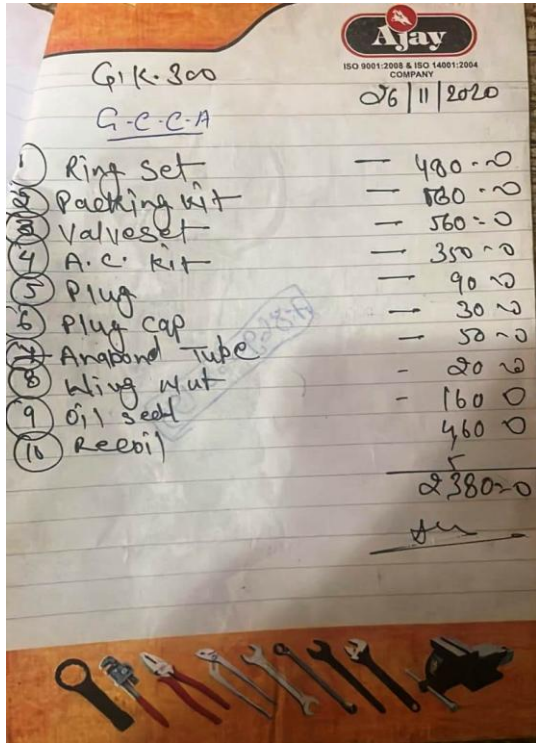 Ajay
ISO 9001:2008 & ISO 14001:2004
COMPANY
GIK.300
26/11/2020
G-C-C-A
1 Ring set — 480-0
2 Packing kit — 180-0
3 Valveset — 560-0
4 A.C. Kit — 350-0
5 Plug — 90-0
6 Plug cap — 30-0
7 Anapond Tube — 50-0
8 Wing Nut - 20-0
9 Oil seal - 160 0
10 Recoil 460 0
2380-0